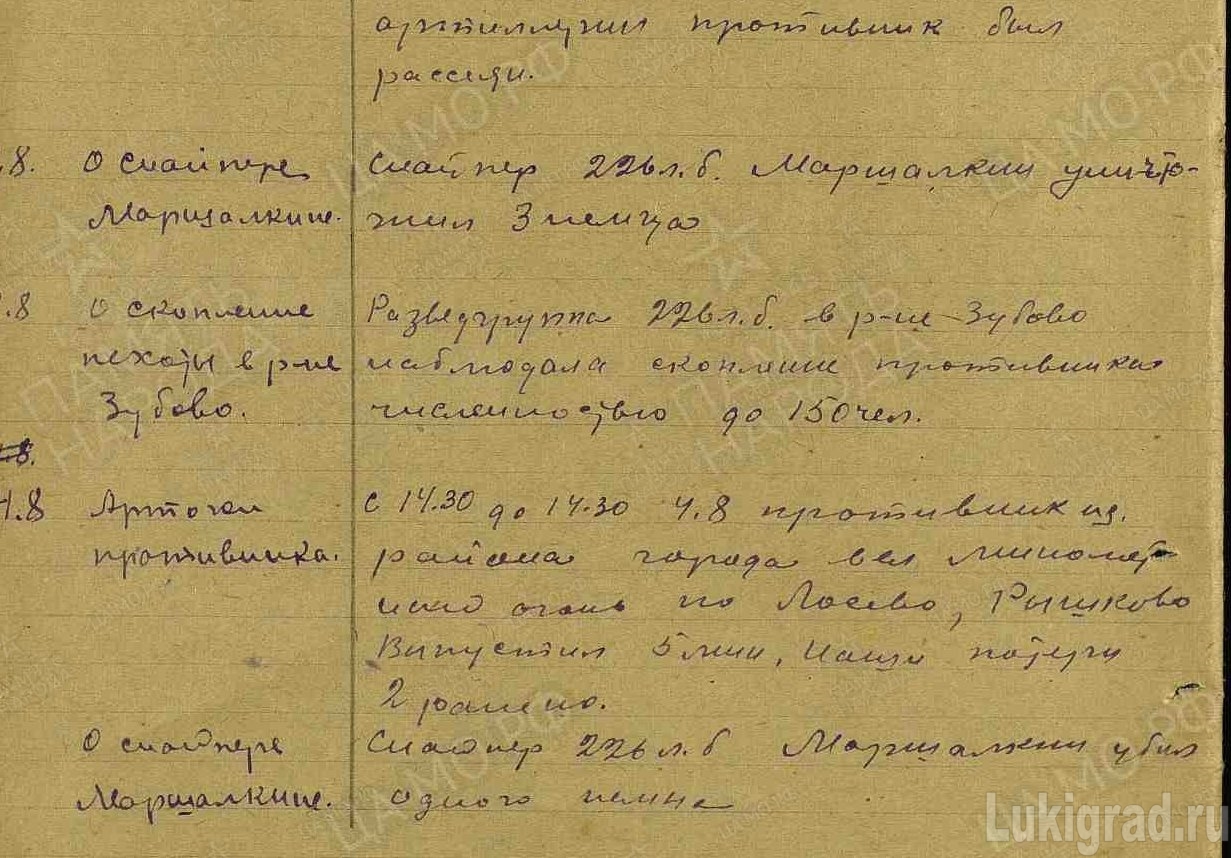 артиллерии противник был
рассеян.
.8. О снайпере Снайпер 22б л.б. Маршалкин уничто-
Маршалкине. жил 3 немца
.8 О скопление Разведгруппа 22б л.б. в р-не Зубово
пехоты в р-не наблюдала скопление противника
Зубово. численностью до 150 чел.
4.8 Артогон С 14.30 до 14.30 4.8 противник из
противника. района города вел миномет
ный огонь по Лосево, Рышково
Выпустил 5 мин, наши потери
2 ранено.
О снайпере Снайпер 22б л.б Маршалкин убил
Маршалкине. одного немца
Lukigrad.ru
ПАМЯТЬ НАРОДА
ЦАМО РФ